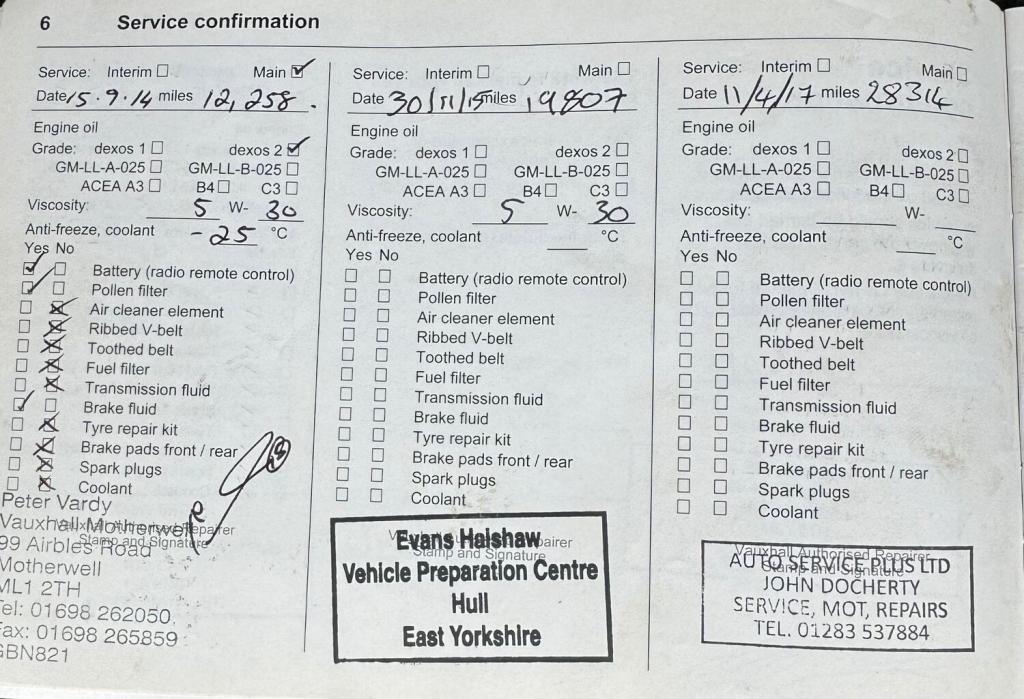 6 Service confirmation
Service: Interim ☐ Main ☑
Date 15.9.14 miles 12,258.
Engine oil
Grade: dexos 1 ☐ dexos 2 ☑
GM-LL-A-025 ☐ GM-LL-B-025 ☐
ACEA A3 ☐ B4 ☐ C3 ☐
Viscosity: 5 W- 30
Anti-freeze, coolant -25 °C
Yes No
☑ ☐ Battery (radio remote control)
☑ ☐ Pollen filter
☐ ☒ Air cleaner element
☐ ☒ Ribbed V-belt
☐ ☒ Toothed belt
☐ ☒ Fuel filter
☐ ☒ Transmission fluid
☑ ☐ Brake fluid
☐ ☒ Tyre repair kit
☐ ☒ Brake pads front / rear
☐ ☒ Spark plugs
☐ ☒ Coolant
Peter Vardy
Vauxhall Motherwell
Stamp and Signature
99 Airbles Road
Motherwell
ML1 2TH
Tel: 01698 262050
Fax: 01698 265859
GBN821
Service: Interim ☐ Main ☐
Date 30/11/15 miles 19807
Engine oil
Grade: dexos 1 ☐ dexos 2 ☐
GM-LL-A-025 ☐ GM-LL-B-025 ☐
ACEA A3 ☐ B4 ☐ C3 ☐
Viscosity: 5 W- 30
Anti-freeze, coolant °C
Yes No
☐ ☐ Battery (radio remote control)
☐ ☐ Pollen filter
☐ ☐ Air cleaner element
☐ ☐ Ribbed V-belt
☐ ☐ Toothed belt
☐ ☐ Fuel filter
☐ ☐ Transmission fluid
☐ ☐ Brake fluid
☐ ☐ Tyre repair kit
☐ ☐ Brake pads front / rear
☐ ☐ Spark plugs
☐ ☐ Coolant
Evans Halshaw
Stamp and Signature
Vehicle Preparation Centre
Hull
East Yorkshire
Service: Interim ☐ Main ☐
Date 11/4/17 miles 28314
Engine oil
Grade: dexos 1 ☐ dexos 2 ☐
GM-LL-A-025 ☐ GM-LL-B-025 ☐
ACEA A3 ☐ B4 ☐ C3 ☐
Viscosity: W-
Anti-freeze, coolant °C
Yes No
☐ ☐ Battery (radio remote control)
☐ ☐ Pollen filter
☐ ☐ Air cleaner element
☐ ☐ Ribbed V-belt
☐ ☐ Toothed belt
☐ ☐ Fuel filter
☐ ☐ Transmission fluid
☐ ☐ Brake fluid
☐ ☐ Tyre repair kit
☐ ☐ Brake pads front / rear
☐ ☐ Spark plugs
☐ ☐ Coolant
Vauxhall Authorised Repairer
Stamp and Signature
AUTO SERVICE PLUS LTD
JOHN DOCHERTY
SERVICE, MOT, REPAIRS
TEL. 01283 537884